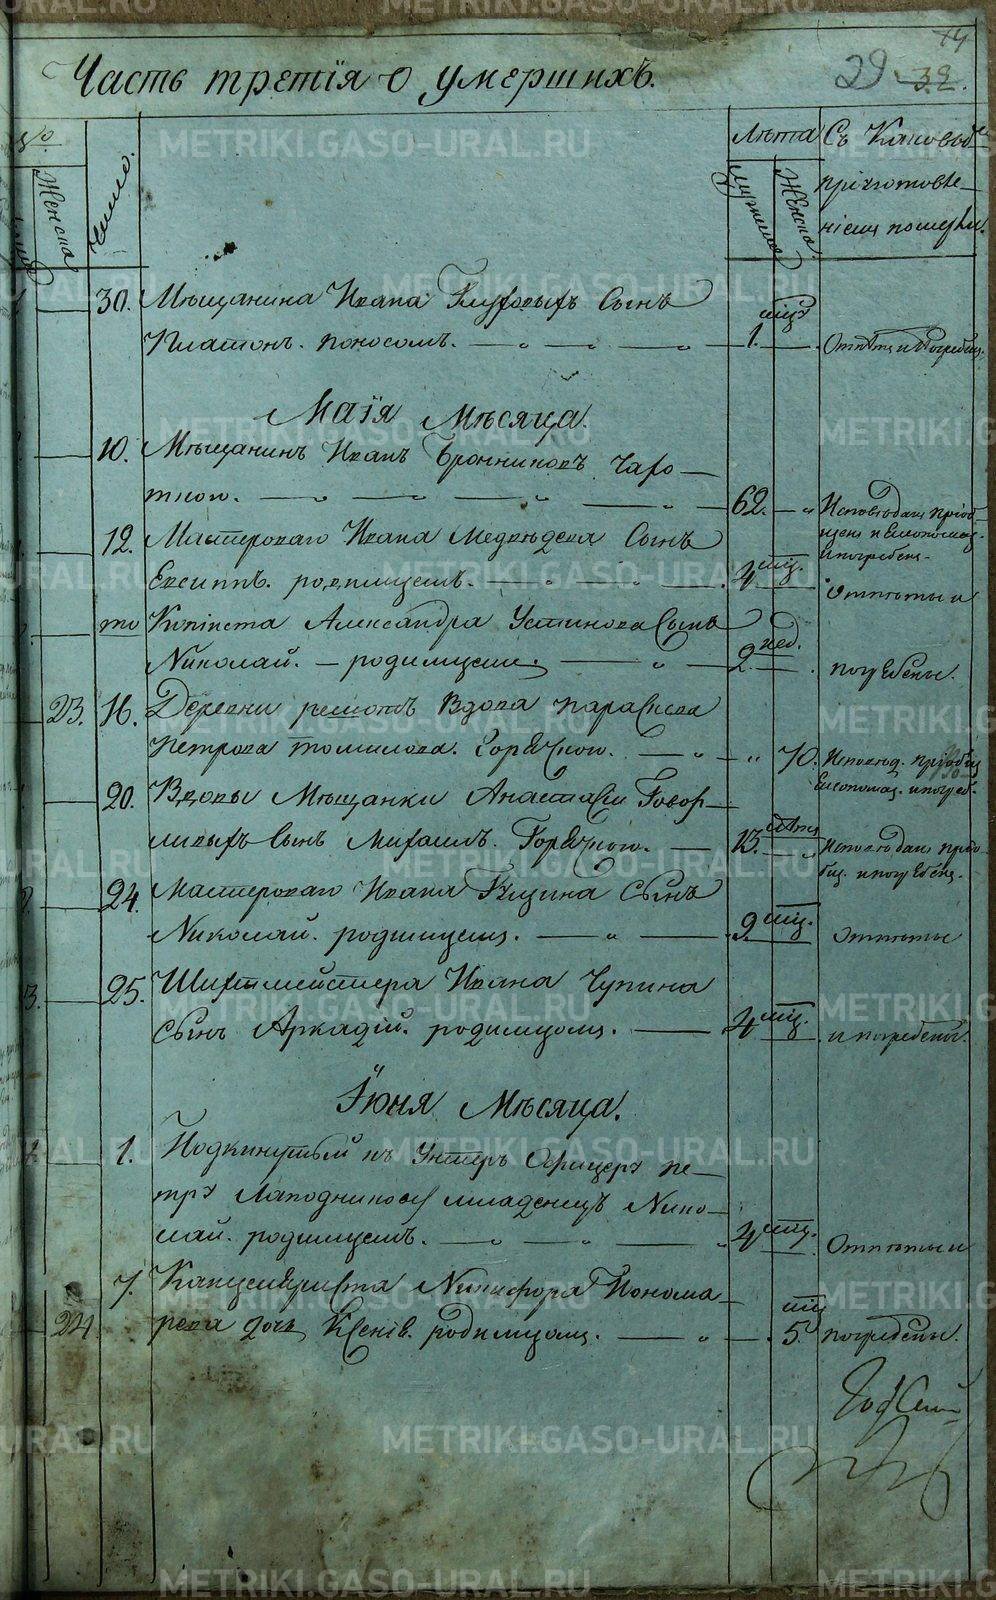 Часть третїя о умершихъ.
29 32.
Женска
Число.
Лѣта
Мужеска
Женска
Съ Каковы
прїуготовле-
нїемъ померли.
30. Мѣщанина Ивана Глуховыхъ Сынъ
мцъ
Платонъ. поносомъ. 1. Отпѣтъ и Погребенъ.
Маїя Мѣсяца.
10. Мѣщанинъ Иванъ Бронниковъ Чахо-
ткою. 62. Исповѣданъ прїоб-
щенъ и Елеопомаз.
и погребенъ.
12. Мастероваго Ивана Медвѣдева Сынъ
Евсиппъ. родимцемъ. 4 мц. Отпѣты и
то Копїиста Александра Устинова Сынъ
Николай. – родимцемъ. 2 нед. погребены.
23. 16. Деревни решотъ Вдова Параскева
Петрова Томилова. Горячкою. 70. Исповѣд. прїобщ.
Елеопомаз. и погреб.
20. Вдовы Мѣщанки Анастасїи Говор-
ливыхъ сынъ Михаилъ. Горячкою. 13. лѣтъ Исповѣданъ прїоб-
щ. и погребенъ.
24. Мастероваго Ивана Сынъ
Николай. родимцемъ. 9. мц. Отпѣты
25. Шихтмейстера Ивана Чупина
Сынъ Аркадїй. родимцомъ. 4 мц. и погребены.
Їюня Мѣсяца.
1. Подкинутый къ Унтеръ Офицеру пе-
тру Лаподникову младенецъ Нико-
лай. родимцемъ. 4 мц. Отпѣты и
7. Канцеляриста Никифора Понома-
мц
24 рева дочь Ксенїя. родимцомъ. 5. погребены.